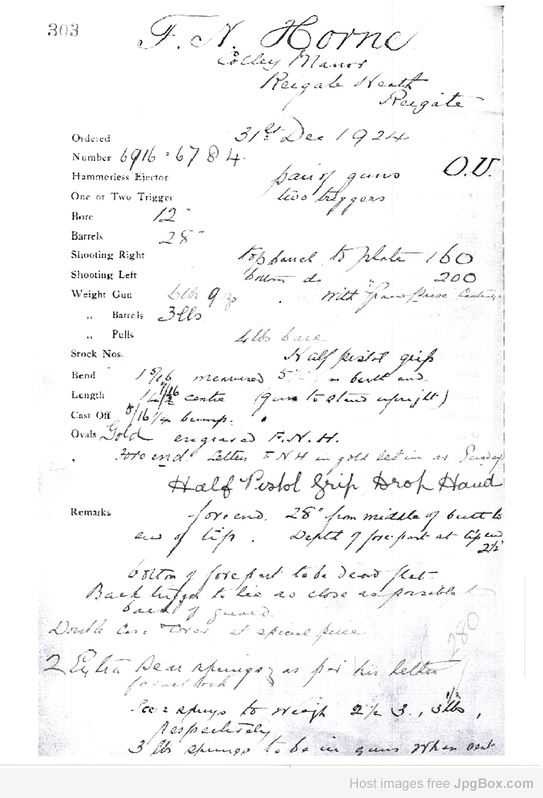 303
F. N. Horne
Colley Manor
Reigate Heath
Reigate
Ordered 31st Dec 1924
Number 6916 = 6784. O.U.
Hammerless Ejector pair of guns
One or Two Trigger two triggers
Bore 12"
Barrels 28"
Shooting Right top barrel to plate 160
Shooting Left bottom do " 200
Weight Gun 6lbs 9 with
„ Barrels 3lbs
„ Pulls 4lbs bare
Stock Nos. Half pistol grip
Bend 1 5/16 measured butt end
Length centre (guns to stand upright)
Cast Off
Ovals Gold engraved F.N.H.
Fore end. Letters F.N.H in gold let in as
Half Pistol Grip Drop Hand
Remarks fore end. 28" from middle of butt to
end of tip. Depth of fore part at tip end
2½
bottom of fore part to be dead flat.
Back trigger to lie as close as possible to
back of guard.
Double Case at special price
2 Extra Sear springs as per his letter
Sear springs to weigh 2½ 3., 3½ lbs,
respectively
3 lbs springs to be in guns when sent
280
Host images free JpgBox.com